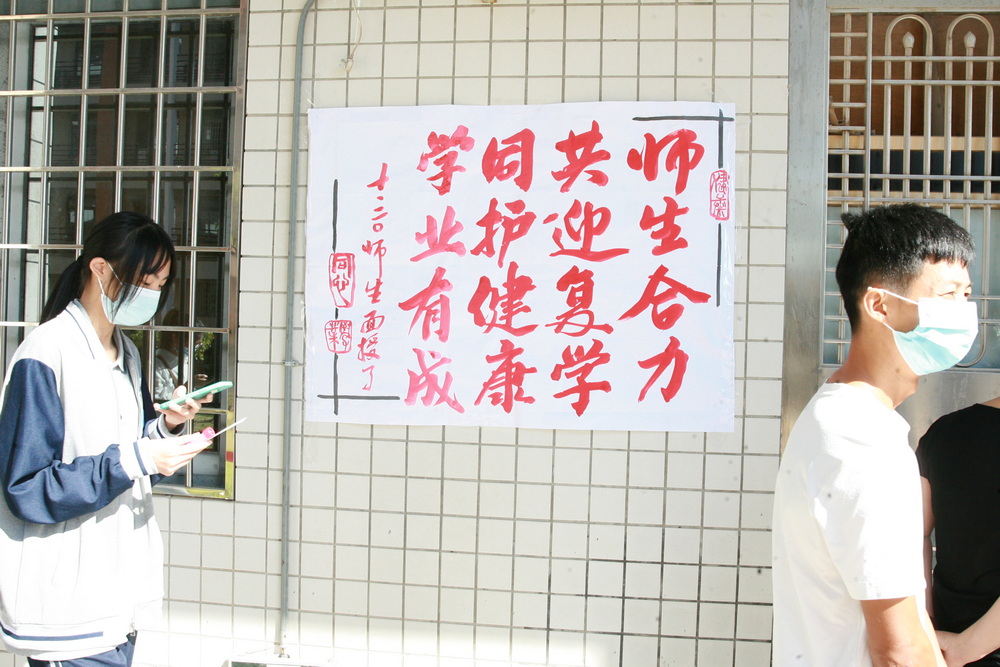 师生合力
共迎复学
同护健康
学业有成
十·二〇师生面授了